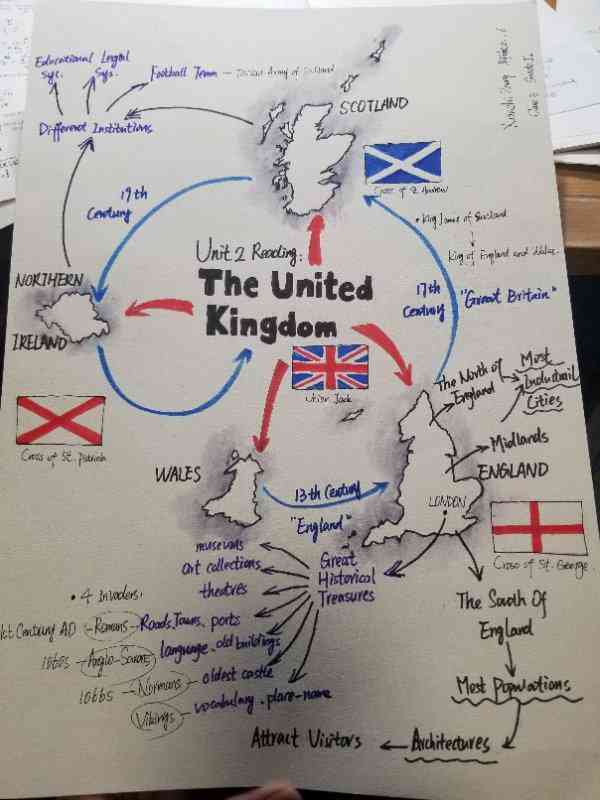 Educational Legtal
Syc. Sys.
Football Team
SCOTLAND
Different Institutions
Cross of St Andrew
19th
Century
• King James of Scotland
King of England and Wales
Unit 2 Reading:
The United
Kingdom
NORTHERN
IRELAND
17th
Century
"Great Britain"
Union Jack
The North of
England
Most
Industrail
Cities
Cross of St. Patrick
Midlands
WALES
ENGLAND
13th Century
"England"
LONDON
Cross of St. George
museums
art collections
theatres
Great
Historical
Treasures
• 4 Invaders:
Century AD - Romans - Roads, Towns, ports
Anglo-Saxons language, old buildings
1066s - Normans - oldest castle
Vikings - vocabulary, place-name
The South Of
England
Most Populations
Attract Visitors
Architectures